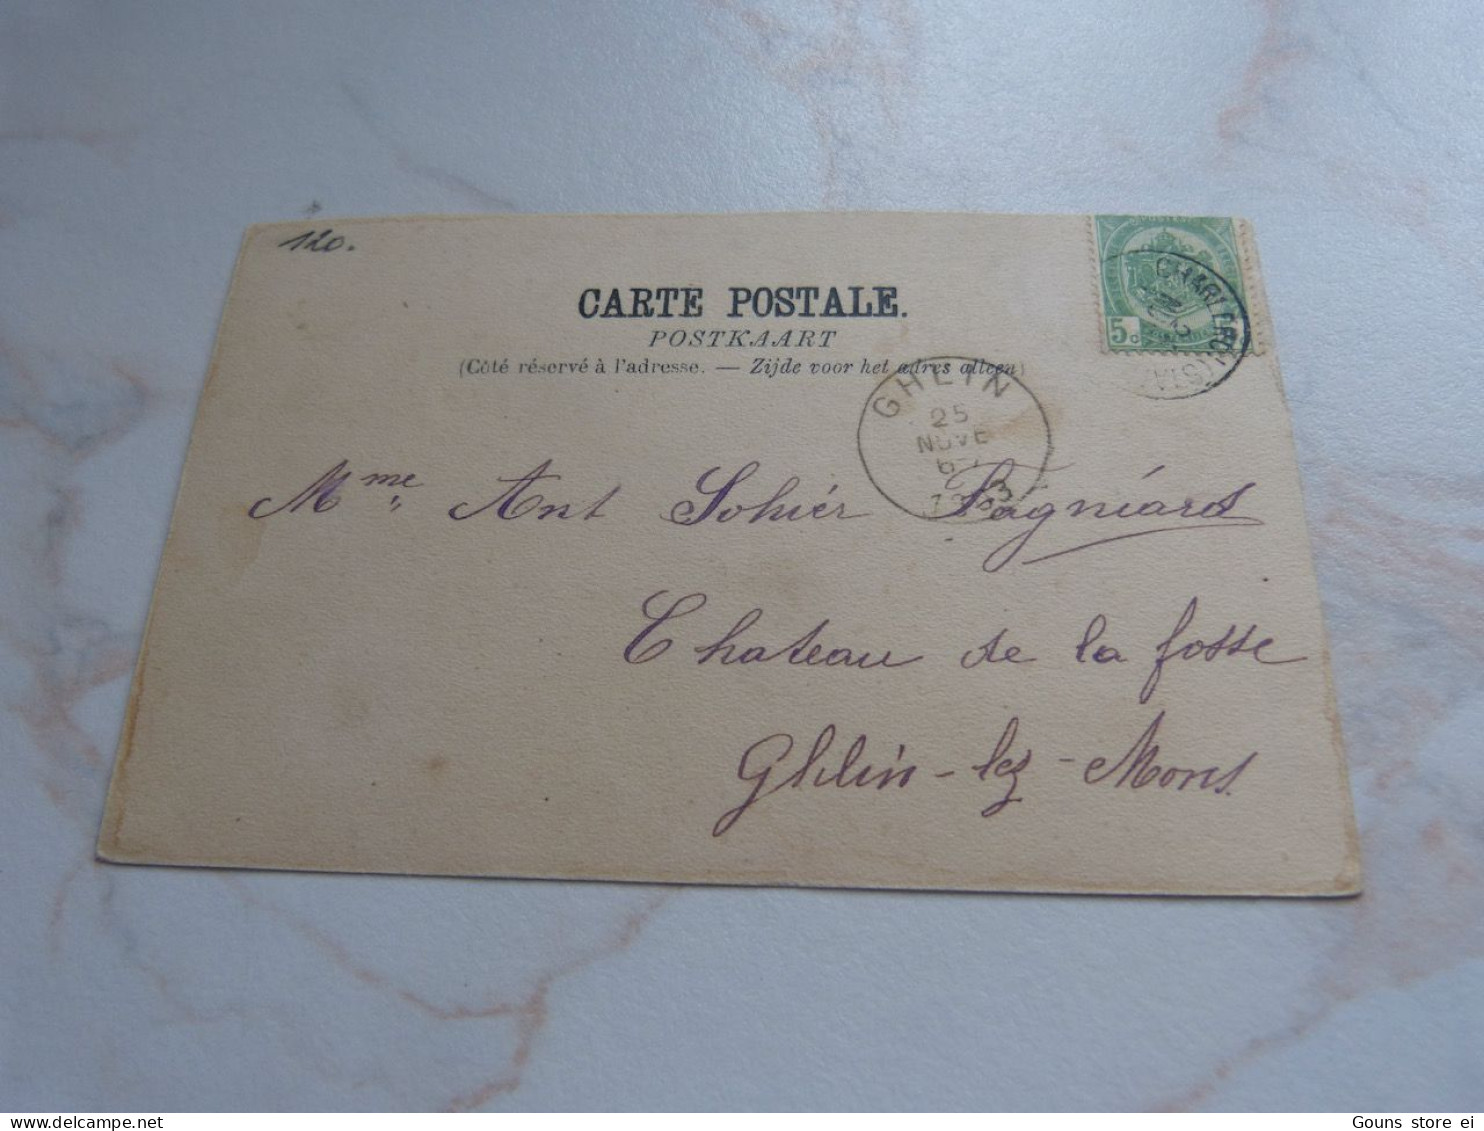 120.
CARTE POSTALE.
POSTKAART
(Côté réservé à l'adresse. — Zijde voor het adres alleen)
5c
GHLIN
25
NOVE
Mme Ant Sohiér Fagniéard
Chateau de la fosse
Ghlin-lez-Mons
Gouns store ei